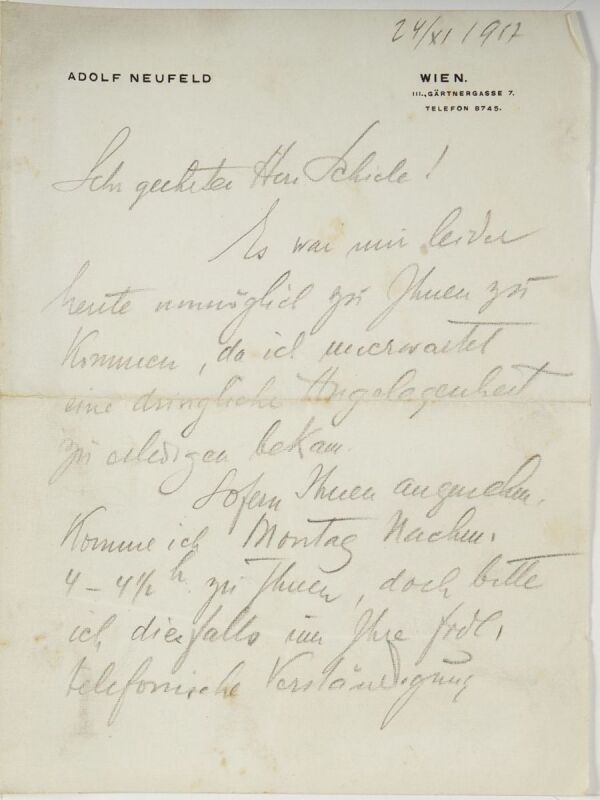 24/XI 1917
ADOLF NEUFELD
WIEN.
III., GÄRTNERGASSE 7.
TELEFON 8745.
Sehr geehrter Herr Schiele!
Es war mir leider
heute unmöglich zu Ihnen zu
kommen, da ich unerwartet
eine dringliche Angelegenheit
zu erledigen bekam.
Sofern Ihnen angenehm,
komme ich Montag Nachm.
4 – 4½ h zu Ihnen, doch bitte
ich diesfalls um Ihre frdl.
telefonische Verständigung